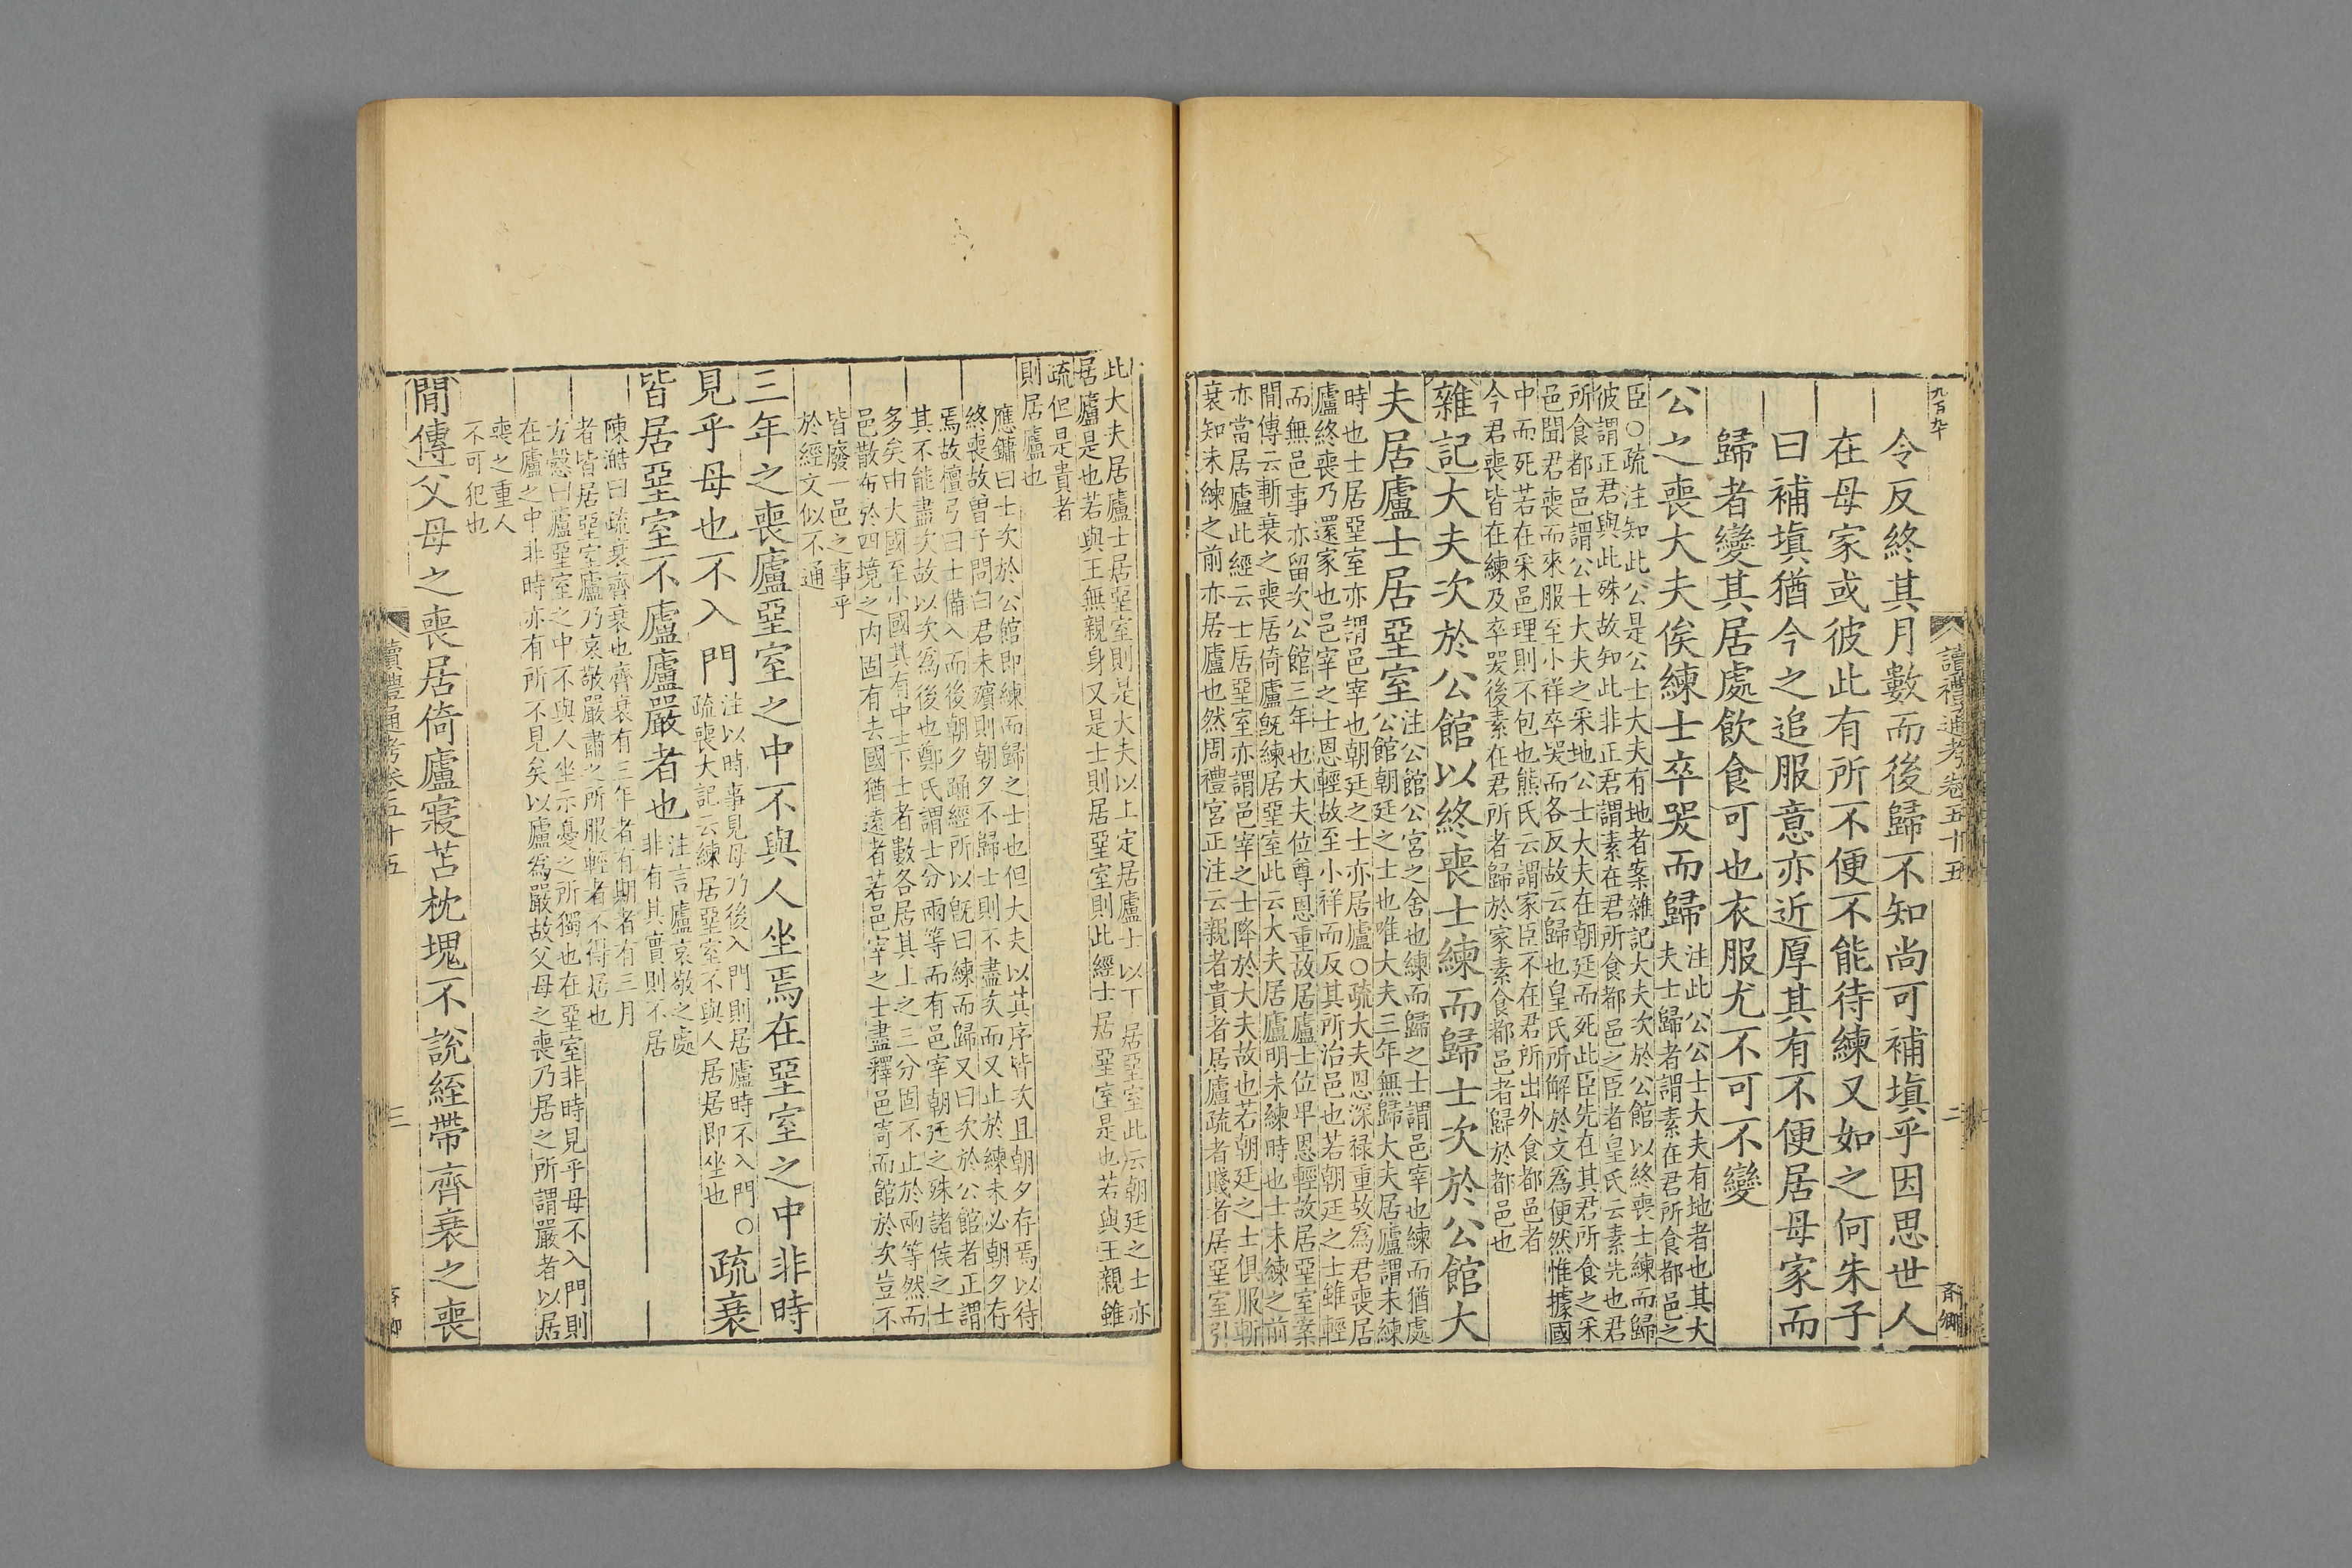 九百九十
讀禮通考卷五十五
二
令反終其月數而後歸不知尚可補塡乎因思世人
在母家或彼此有所不便不能待練又如之何朱子
曰補塡猶今之追服意亦近厚其有不便居母家而
歸者變其居處飮食可也衣服尤不可不變
公之喪大夫俟練士卒哭而歸
注此公公士大夫有地者也其大
夫士歸者謂素在君所食都邑之
臣○疏注知此公是公士大夫有地者案雜記大夫次於公館以終喪士練而歸
彼謂正君與此殊故知此非正君謂素在君所食都邑之臣者皇氏云素先也君
所食都邑謂公士大夫之采地公士大夫在朝廷而死此臣先在其君所食之采
邑聞君喪而來服至小祥卒哭而各反故云歸也皇氏所解於文爲便然惟據國
中而死若在采邑理則不包也熊氏云謂家臣不在君所出外食都邑者
今君喪皆在練及卒哭後素在君所者歸於家素食都邑者歸於都邑也
雜記大夫次於公館以終喪士練而歸士次於公館大
夫居廬士居堊室
注公館公宮之舍也練而歸之士謂邑宰也練而猶處
公館朝廷之士也唯大夫三年無歸大夫居廬謂未練
時也士居堊室亦謂邑宰也朝廷之士亦居廬○疏大夫恩深祿重故爲君喪居
廬終喪乃還家也邑宰之士恩輕故至小祥而反其所治邑也若朝廷之士雖輕
而無邑事亦留次公館三年也大夫位尊恩重故居廬士位卑恩輕故居堊室案
閒傳云斬衰之喪居倚廬旣練居堊室此云大夫居廬明未練時也士未練之前
亦當居廬此經云士居堊室亦謂邑宰之士降於大夫故也若朝廷之士俱服斬
衰知未練之前亦居廬也然周禮宮正注云親者貴者居廬疏者賤者居堊室引
此大夫居廬士居堊室則是大夫以上定居廬士以下居堊室此云朝廷之士亦
居廬是也若與王無親身又是士則居堊室則此經士居堊室是也若與王親雖
疏但是貴者
則居廬也
應鏞曰士次於公館即練而歸之士也但大夫以其序皆次且朝夕存焉以待
終喪故曾子問曰君未殯則朝夕不歸士則不盡次而又止於練未必朝夕存
焉故檀弓曰士備入而後朝夕踊經所以旣曰練而歸又曰次於公館者正謂
其不能盡次故以次爲後也鄭氏謂士分兩等而有邑宰朝廷之殊諸侯之士
多矣由大國至小國其有中士下士者數各居其上之三分固不止於兩等然而
邑散布於四境之内固有去國猶遠者若邑宰之士盡釋邑寄而館於次豈不
皆廢一邑之事乎
於經文似不通
三年之喪廬堊室之中不與人坐焉在堊室之中非時
見乎母也不入門
注以時事見母乃後入門則居廬時不入門○
疏喪大記云練居堊室不與人居居即坐也
疏衰
皆居堊室不廬廬嚴者也
注言廬哀敬之處
非有其實則不居
陳澔曰疏衰齊衰也齊衰有三年者有期者有三月
者皆居堊室廬乃哀敬嚴肅之所服輕者不得居也
方慤曰廬堊室之中不與人坐示憂之所獨也在堊室非時見乎母不入門則
在廬之中非時亦有所不見矣以廬爲嚴故父母之喪乃居之所謂嚴者以居
喪之重人
不可犯也
閒傳父母之喪居倚廬寢苫枕塊不說絰帶齊衰之喪
讀禮通考卷五十五
三